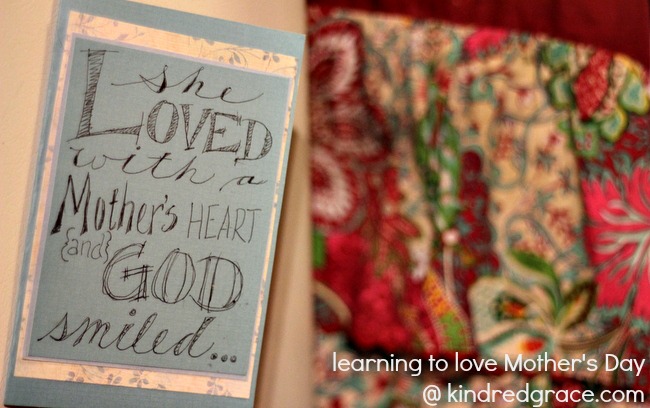 she
LOVED
with a
Mother's HEART
{and} GOD
smiled...
learning to love Mother's Day
@ kindredgrace.com